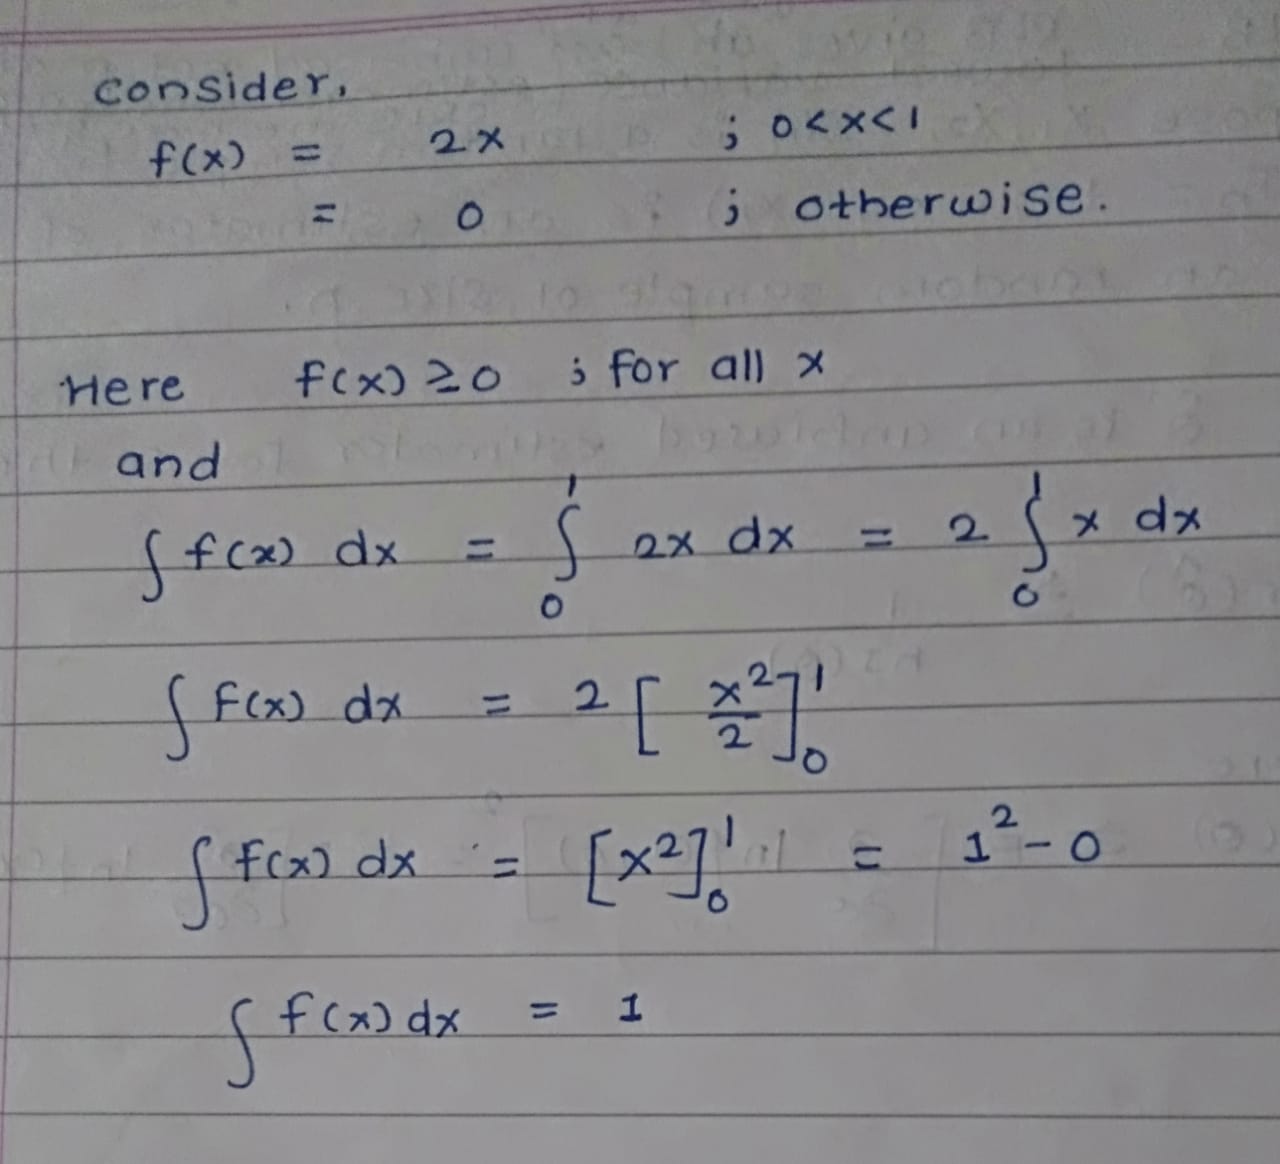 consider,
f(x) = 2x ; 0<x<1
= 0 ; otherwise.
Here f(x) ≥ 0 ; for all x
and
∫ f(x) dx = ∫₀¹ 2x dx = 2 ∫₀¹ x dx
∫ f(x) dx = 2 [ x²/2 ]₀¹
∫ f(x) dx = [x²]₀¹ = 1² - 0
∫ f(x) dx = 1